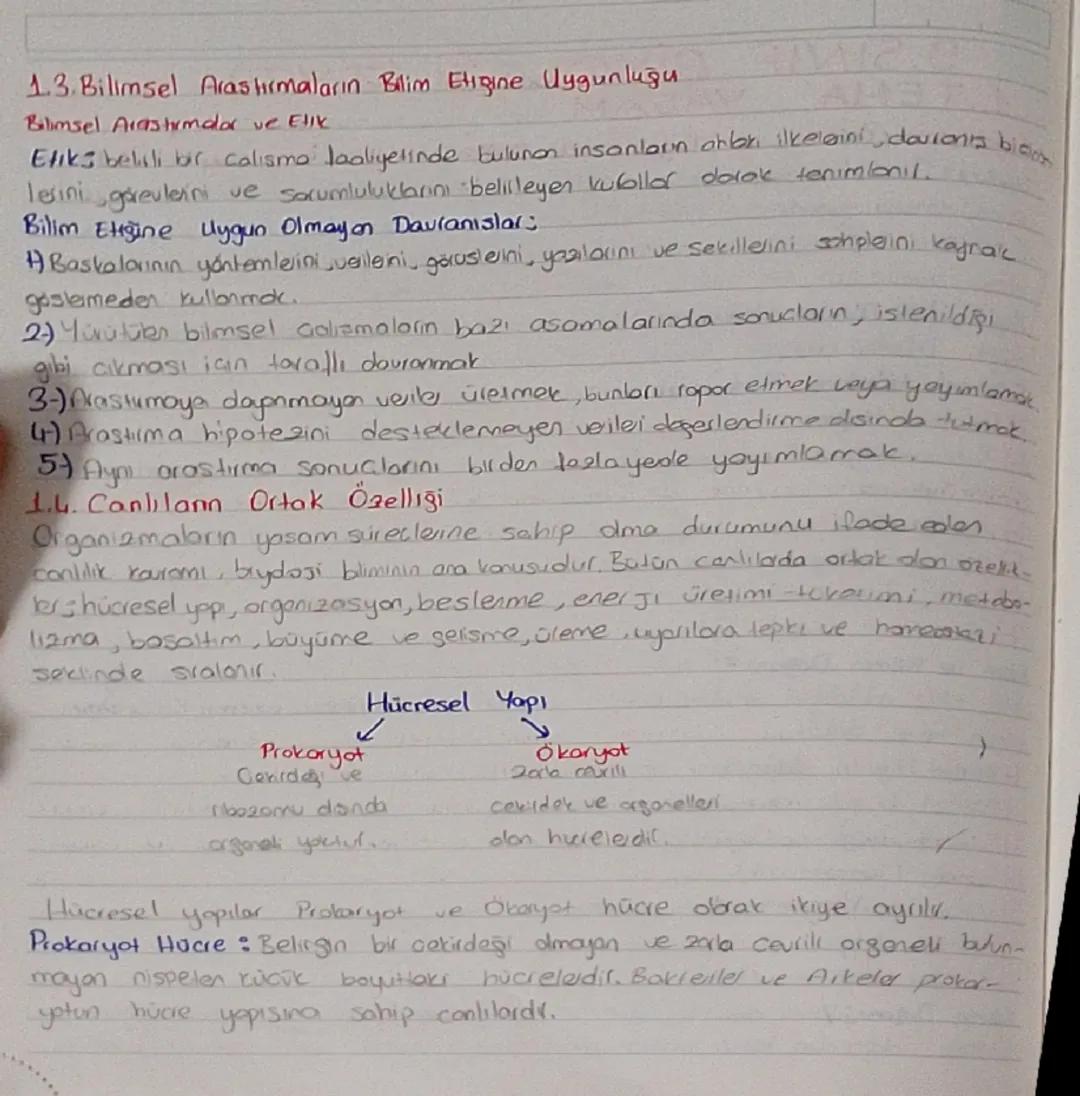 1.3. Bilimsel Araştırmaların Bilim Etiğine Uygunluğu
Bilimsel Araştırmalar ve Etik
Etik: belirli bir çalışma faaliyetinde bulunan insanların ahlak ilkelerini, davranış biçim-
lerini, görevlerini ve sorumluluklarını belirleyen kurallar olarak tanımlanır.
Bilim Etiğine Uygun Olmayan Davranışlar:
1) Başkalarının yöntemlerini, verilerini, görüşlerini, yazılarını ve şekillerini sahiplerini kaynak
göstermeden kullanmak.
2-) Yürütülen bilimsel çalışmaların bazı aşamalarında sonuçların, istenildiği
gibi çıkması için taraflı davranmak
3-) Araştırmaya dayanmayan veriler üretmek, bunları rapor etmek veya yayımlamak.
4-) Araştırma hipotezini desteklemeyen verileri değerlendirme dışında tutmak.
5-) Aynı araştırma sonuçlarını birden fazla yerde yayımlamak.
1.4. Canlıların Ortak Özelliği
Organizmaların yaşam süreçlerine sahip olma durumunu ifade eden
canlılık kavramı, biyoloji biliminin ana konusudur. Bütün canlılarda ortak olan özellik-
ler; hücresel yapı, organizasyon, beslenme, enerji üretimi-tüketimi, metabo-
lizma, boşaltım, büyüme ve gelişme, üreme, uyarılara tepki ve homeostazi
şeklinde sıralanır.
Hücresel Yapı
Prokaryot Ökaryot
Çekirdeği ve zarla çevrili
ribozomu dışında çekirdek ve organelleri
organeli yoktur. olan hücrelerdir.
Hücresel yapılar Prokaryot ve Ökaryot hücre olarak ikiye ayrılır.
Prokaryot Hücre: Belirgin bir çekirdeği olmayan ve zarla çevrili organeli bulun-
mayan nispeten küçük boyutları hücrelerdir. Bakteriler ve Arkeler prokar-
yotun hücre yapısına sahip canlılardır.